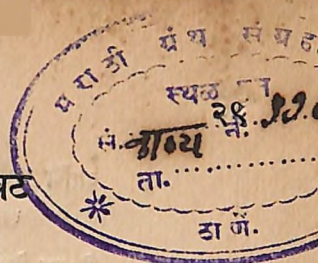 मराठी ग्रंथ संग्रहा
स्थळ
सं. काव्य २४ नं.
ता. ..............
ठाणें.